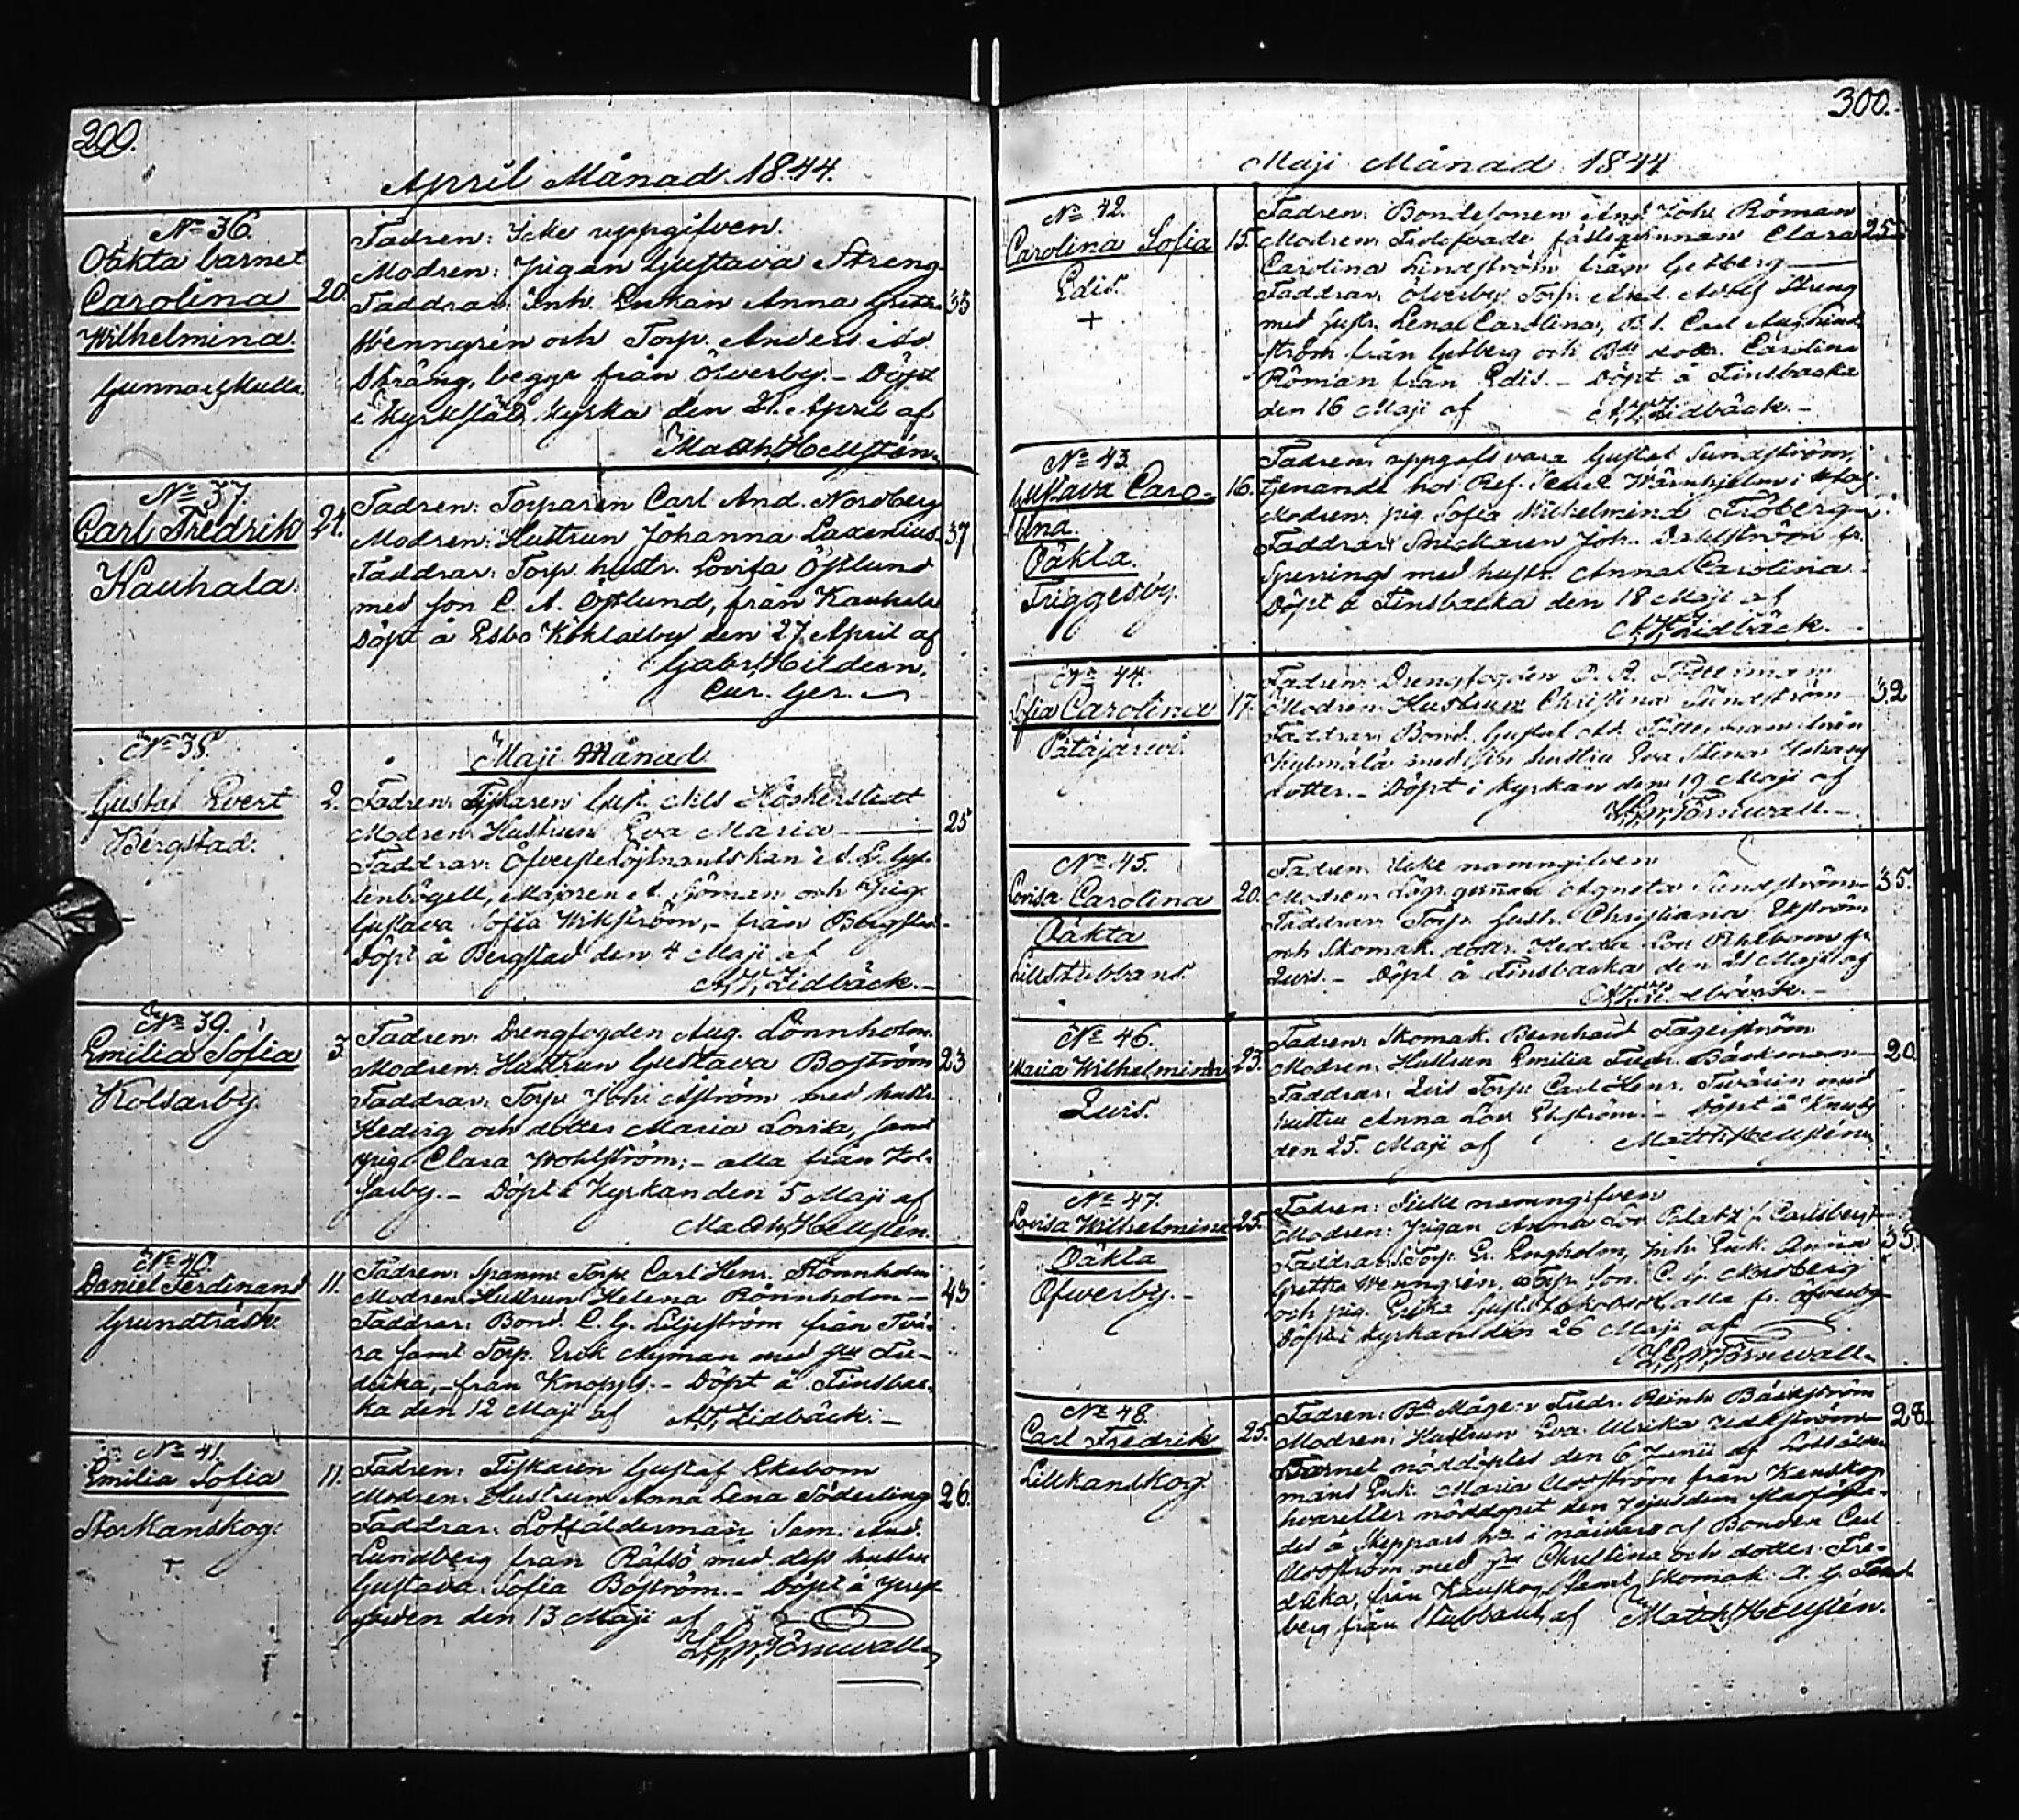 200.
April Månad 1844.
No 36.
Oäkta barnet
Carolina
Wilhelmina
Gunnarskulla
20.
Fadren: Icke uppgifven.
Modren: Pigan Gustava Streng
Faddrar: Inh. Enkan Anna Greta
Wenngrén och Torp. Anders
Sträng, begge från Öfverby. - Döpt
i Kyrkslätt kyrka den 21. April af
Math. Hellstén.
33
No 37.
Carl Fredrik
Kauhala.
24.
Fadren: Torparen Carl And. Nordberg
Modren: Hustrun Johanna Ladenius
Faddrar: Torp. hustr. Lovisa Östlund
med son C. A. Östlund, från Kauhala
Döpt å Esbo Köklaby den 27 April af
Gabr. Hildeen,
Cur. Ger.
37
No 38.
Gustaf Evert
Bergstad.
Maji Månad
2.
Fadren: Fiskaren Gust. Nils Höckerstedt
Modren: Hustrun Eva Maria
Faddrar: Öfversteløjtnantskan
lenbögell, Majoren A. Sjöman och Pig.
Gustava Sofia Wikström, - från Bergstad
Döpt å Bergstad den 4 Maji af
A. W. Lidbäck. -
25
No 39.
Emilia Sofia
Kolsarby.
3.
Fadren: Drengfogden Aug. Lönnholm.
Modren: Hustrun Gustava Boström
Faddrar: Torp. Joh. Åström med hustr.
Hedvig och dotter Maria Lovisa, samt
pig. Clara Wohlström; - alla från Kol-
sarby. - Döpt i Kyrkan den 5 Maji af
Math. Hellstén.
23
No 40.
Daniel Ferdinand
Grundträsk.
11.
Fadren: Spannm. Torp. Carl Henr. Rönnholm
Modren: Hustrun Helena Rönnholm -
Faddrar: Bond. C. G. Liljeström från Två-
ra samt Torp. Erik Nyman med hu Fre-
drika, - från Knopps. - Döpt å Finsbac-
ka den 12 Maji af A. W. Lidbäck. -
43
No 41.
Emilia Sofia
Storkanskog.
+
11.
Fadren: Fiskaren Gustaf Ekebom
Modren: Hustrun Anna Lena Söderling
Faddrar: Lotsålderman Sam. And.
Lundberg från Räfsö med dess hustru
Gustava Sofia Boström. - Döpt å
den 13 Maji af
Törnwall
26.
300.
Maji Månad 1844
No 42.
Carolina Sofia
Edis.
+
15.
Fadren: Bondesonen And. Joh. Röman
Modren: Trolofvade fästeqvinnan Clara
Carolina Lindström från Getberg
Faddrar: Öfverby Torp. And. Adolf Streng
med hustr. Lena Carolina, B. s. Carl Aug. Lind-
ström från Getberg och Bde dottr. Carolina
Röman från Edis. - Döpt å Finsbacka
den 16 Maji af A. W. Lidbäck. -
25
No 43.
Gustava Caro-
lina.
Oäkta.
Friggesby.
16.
Fadren: uppgifs vara Gustaf Sundström,
tjenande hos
Modren: pig. Sofia Wilhelmina Fröberg
Faddrar: Snickaren Joh. Dahlström fr.
Sperrings med hustr. Anna Carolina
Döpt å Finsbacka den 18 Maji af
A. W. Lidbäck.
No 44.
Sofia Carolina
Pätäjärwi.
17.
Fadren: Drengfogden
Modren: Hustrun Christina Sundström
Faddrar: Bond. Gustaf Ad. från
Kylmälä med sin hustru Eva Stina Johans
dotter. - Döpt i Kyrkan den 19 Maji af
Törnwall. -
32
No 45.
Lovisa Carolina
Oäkta
Lillstubbans.
20.
Fadren: Icke namngifven
Modren: Agneta Sundström
Faddrar: Torp. hustr. Christiana Ekström
och Skomak. dottr. Hedda Lov.
Quis. - Döpt å Finsbacka den 21 Maji af
Lidbäck. -
35.
No 46.
Maria Wilhelmina
Quis.
23.
Fadren: Skomak. Bernhard Fagerström
Modren: Hustrun Emilia Fredr. Bäckman
Faddrar: Quis Torp. Carl Henr. med
hustru Anna Lov. Ekström. - Döpt å
den 25. Maji af Math. Hellstén
20.
No 47.
Lovisa Wilhelmina
Oäkta
Öfwerby. -
25.
Fadren: Icke namngifven
Modren: Pigan Anna Lov. Palatz (Carlsberg)
Faddrar: Torp. Er. Engholm, Inh. Enk. Anna
Gretha Wenngren, Torp. son. C. G. Nordberg
och pig. Erika Gust. Jakobsd. alla fr. Öfverby
Döpt i Kyrkan den 26 Maji af
Törnwall.
33.
No 48.
Carl Fredrik
Lillkanskog.
25.
Fadren: Bde Mågen Fredr. Reinh. Bäckström
Modren: Hustrun Eva Ulrika
Barnet nöddöptes den 6 Junii af Lotsålder-
mans Enk. Maria från Kanskog
hvarefter nöddopet den 7 ejusdem stadfäst-
des å Skeppars i närvaro af Bonden Carl
med hu Christina och dotter Fre-
drika, från Kanskog samt Skomak. A. G.
berg från Stubbans, af Math. Hellstén.
28.